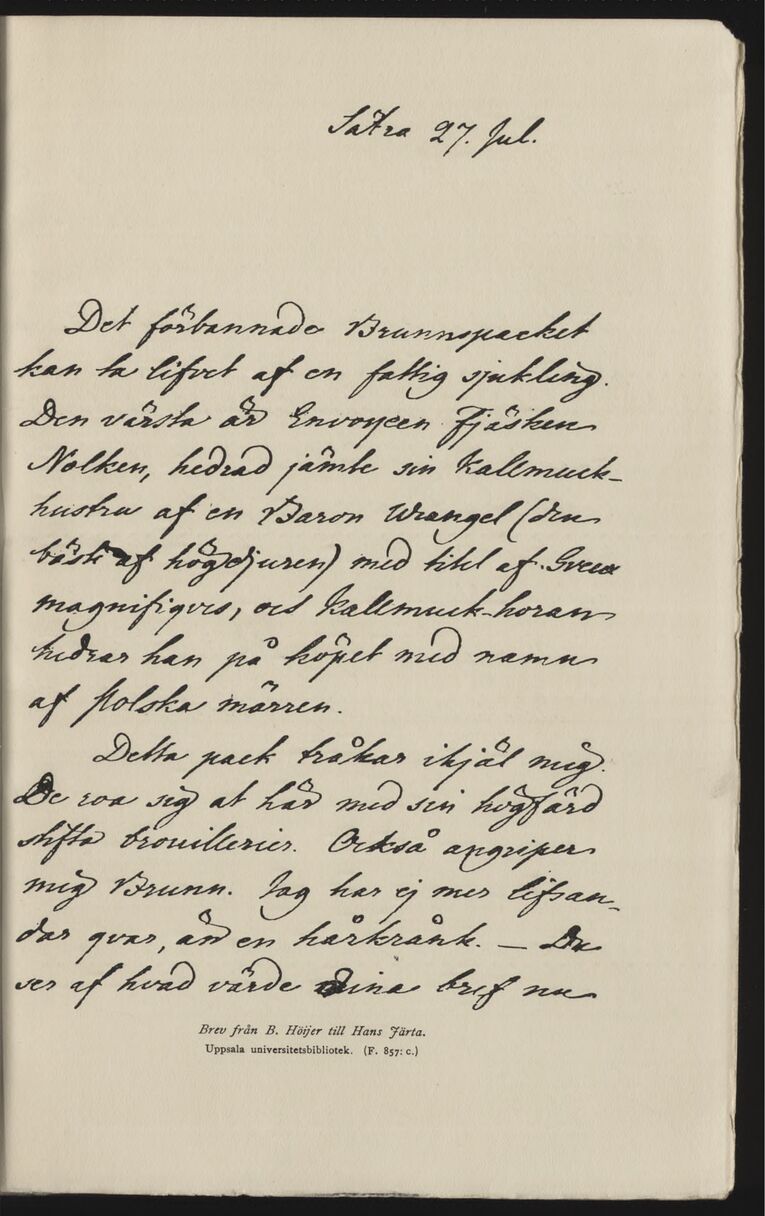 Sätra 27. Jul.
Det förbannade Brunnspacket
kan ta lifvet af en fattig sjukling.
Den värsta är Envoyeen Fjäsken
Nolken, hedrad jämte sin Kallmuck-
hustru af en Baron Wrangel (den
bäste af högdjuren) med titel af Svecex
magnifiques, och Kallmuck-horan
hedrar han på köpet med namn
af Polska märren.
Detta pack tråkar ihjäl mig.
De roa sig at här med sin högfärd
stifta brouillerier. Också angriper
mig Brunn. Jag har ej mer lifsan-
dar qvar, än en hårkrånk. — Du
ser af hvad värde dina bref nu
Brev från B. Höijer till Hans Järta.
Uppsala universitetsbibliotek. (F. 857: c.)